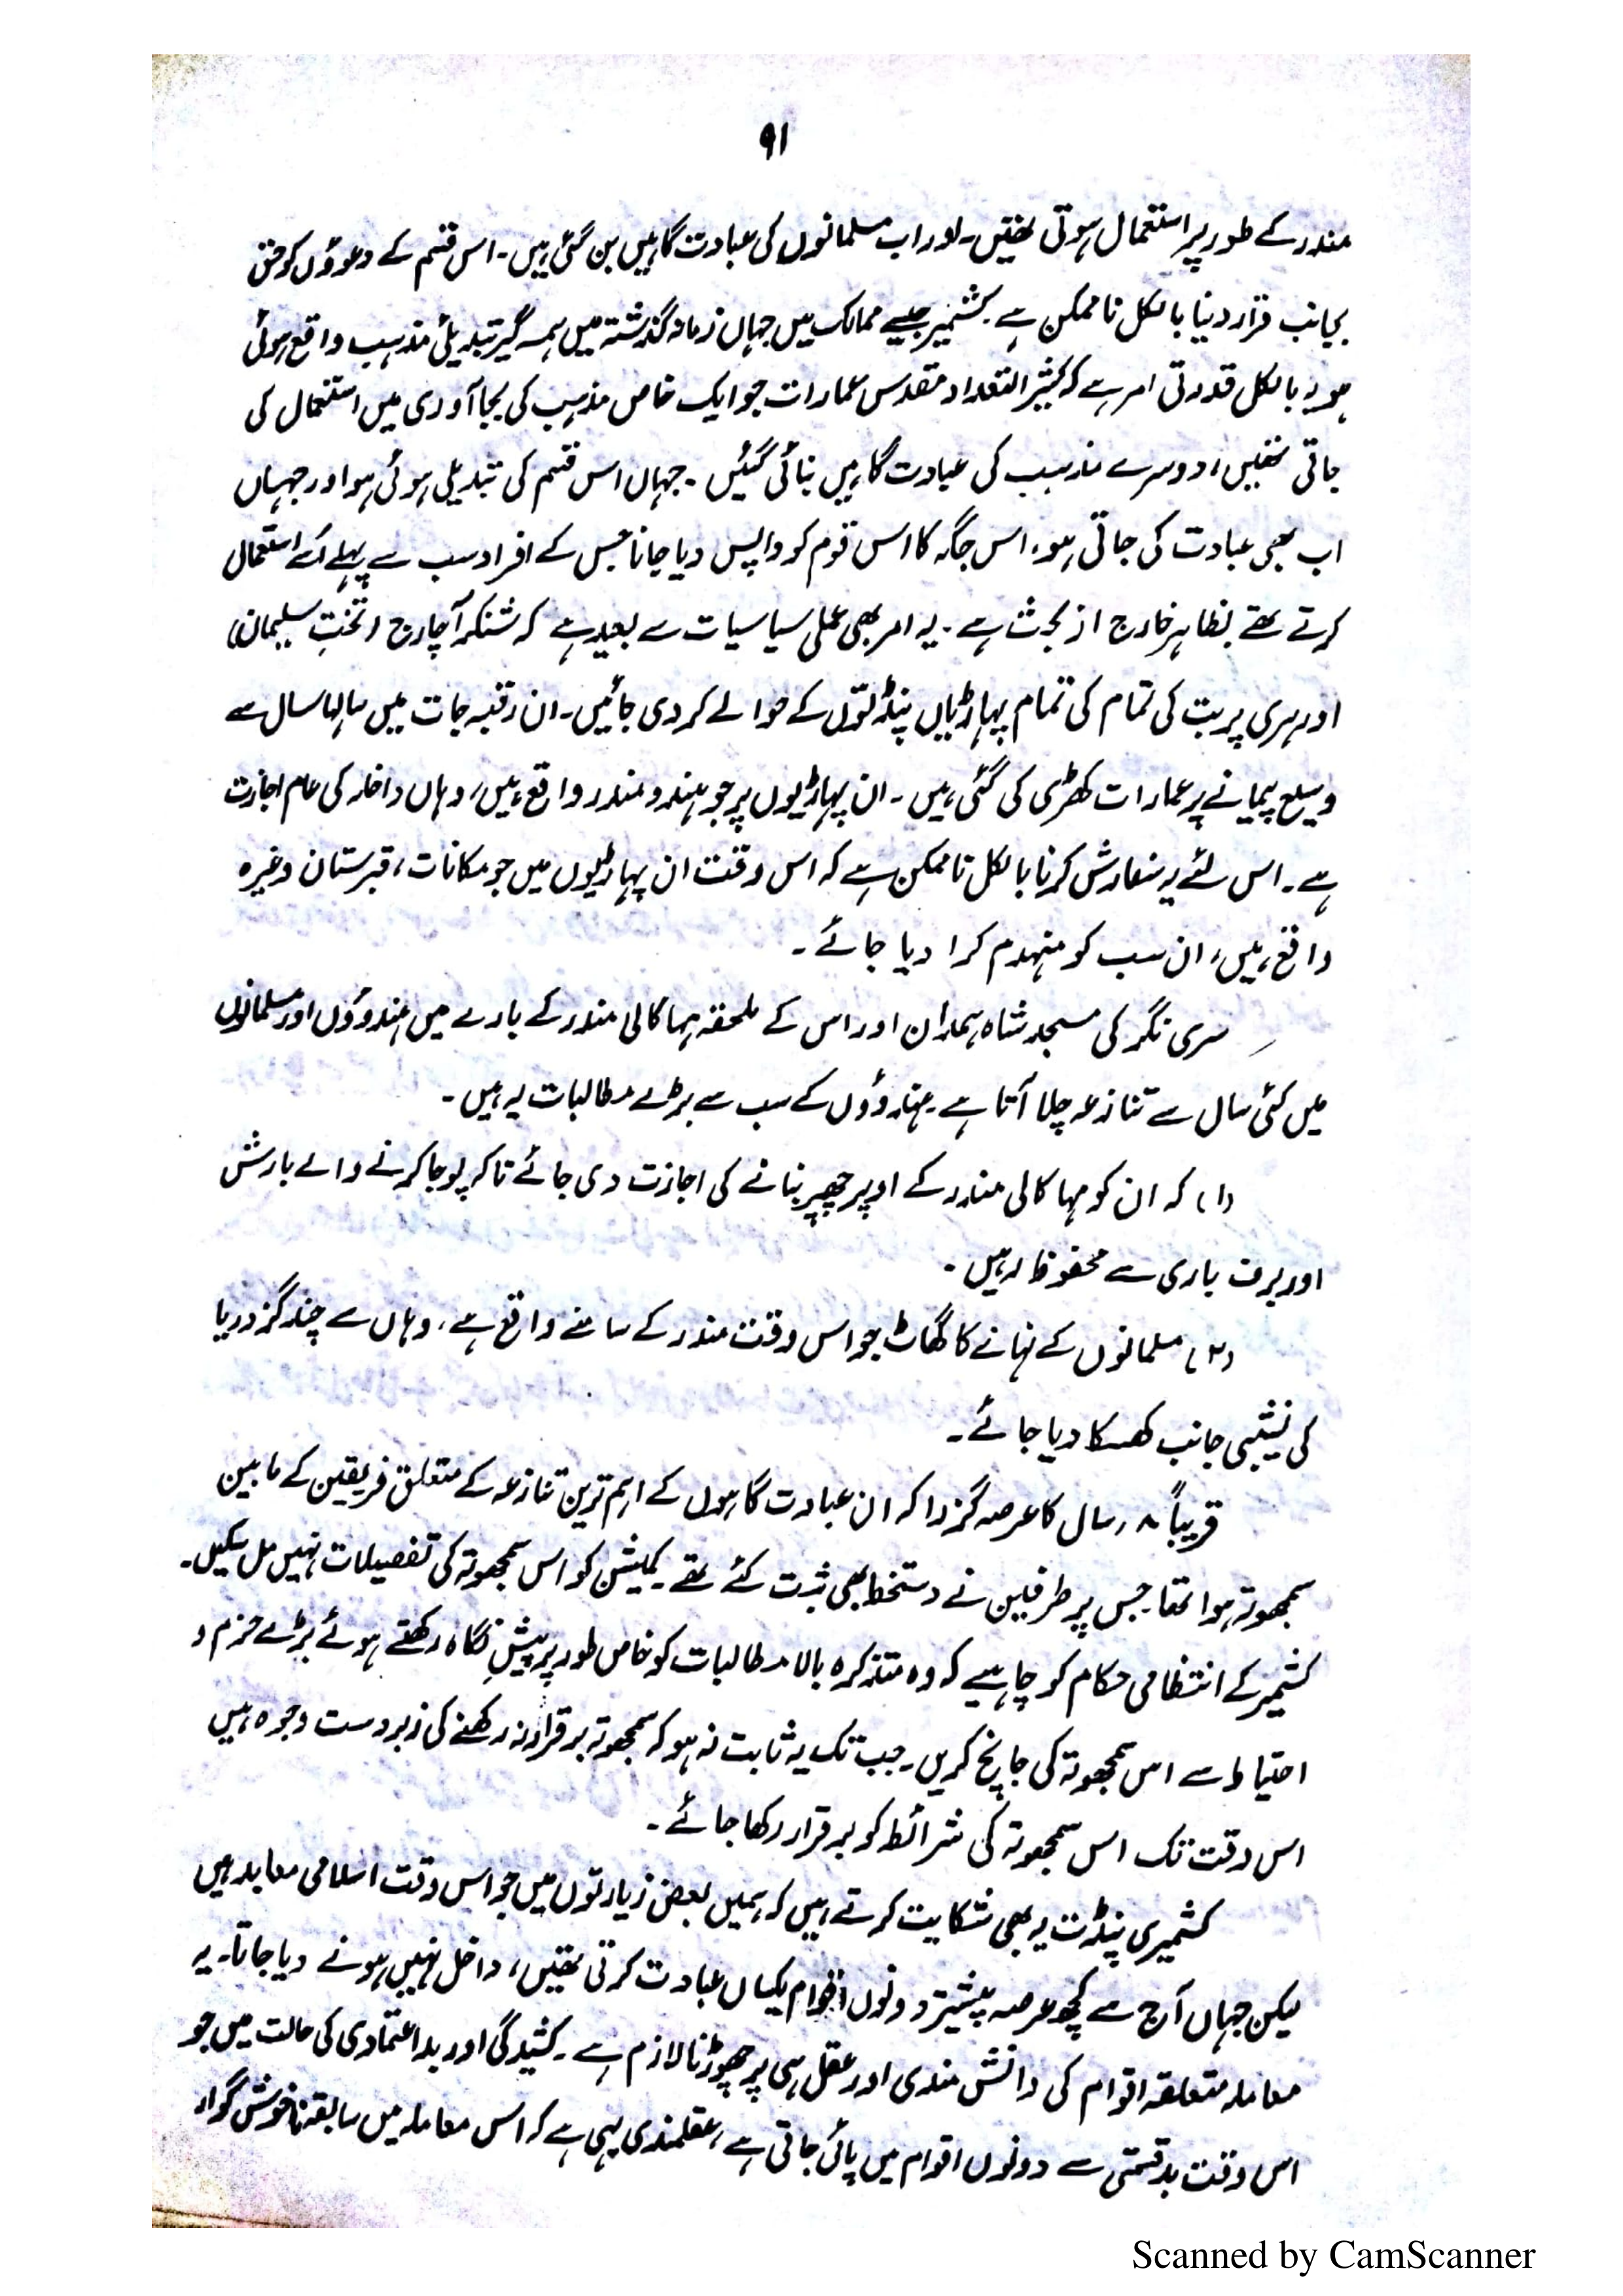 ۹۱
مندر کے طور پر استعمال ہوتی تھیں۔ اور اب مسلمانوں کی عبادت گاہیں بن گئی ہیں۔ اس قسم کے دعوؤں کو حق
بجانب قرار دینا بالکل ناممکن ہے۔ کشمیر جیسے ممالک میں جہاں زمانہ گذشتہ میں ہمہ گیر تبدیلئ مذہب واقع ہوئی
ہو یہ بالکل قدرتی امر ہے کہ کثیر التعداد مقدس عمارات جو ایک خاص مذہب کی بجا آوری میں استعمال کی
جاتی تھیں، دوسرے مذہب کی عبادت گاہیں بنائی گئیں۔ جہاں اس قسم کی تبدیلی ہوئی ہو اور جہاں
اب بھی عبادت کی جاتی ہو، اس جگہ کا اس قوم کو واپس دیا جانا جس کے افراد سب سے پہلے اسے استعمال
کرتے تھے بظاہر خارج از بحث ہے۔ یہ امر بھی عملی سیاسیات سے بعید ہے کہ شنکر آچارج (تختِ سلیمان)
اور ہری پربت کی تمام کی تمام پہاڑیاں پنڈتوں کے حوالے کر دی جائیں۔ ان رقبہ جات میں سالہا سال سے
وسیع پیمانے پر عمارات کھڑی کی گئی ہیں۔ ان پہاڑیوں پر جو ہندو مندر واقع ہیں، وہاں داخلہ کی عام اجازت
ہے۔ اس لئے یہ سفارش کرنا بالکل ناممکن ہے کہ اس وقت ان پہاڑیوں میں جو مکانات، قبرستان وغیرہ
واقع ہیں، ان سب کو منہدم کرا دیا جائے۔
سری نگر کی مسجد شاہ ہمدان اور اس کے ملحقہ مہا کالی مندر کے بارے میں ہندوؤں اور مسلمانوں
میں کئی سال سے تنازعہ چلا آتا ہے۔ ہندوؤں کے سب سے بڑے مطالبات یہ ہیں۔
(۱) کہ ان کو مہا کالی مندر کے اوپر چھپر بنانے کی اجازت دی جائے تاکہ پوجا کرنے والے بارش
اور برف باری سے محفوظ رہیں۔
(۲) مسلمانوں کے نہانے کا گھاٹ جو اس وقت مندر کے سامنے واقع ہے، وہاں سے چند گز دریا
کی نشیبی جانب کھسکا دیا جائے۔
قریباً ۸ سال کا عرصہ گزرا کہ ان عبادت گاہوں کے اہم ترین تنازعہ کے متعلق فریقین کے مابین
سمجھوتہ ہوا تھا جس پر طرفین نے دستخط بھی ثبت کئے تھے۔ کمیشن کو اس سمجھوتہ کی تفصیلات نہیں مل سکیں۔
کشمیر کے انتظامی حکام کو چاہیے کہ وہ متذکرہ بالا مطالبات کو خاص طور پر پیشِ نگاہ رکھتے ہوئے بڑے حزم و
احتیاط سے اس سمجھوتہ کی جانچ کریں۔ جب تک یہ ثابت نہ ہو کہ سمجھوتہ برقرار نہ رکھنے کی زبردست وجوہ ہیں
اس وقت تک اس سمجھوتہ کی شرائط کو برقرار رکھا جائے۔
کشمیری پنڈت یہ بھی شکایت کرتے ہیں کہ ہمیں بعض زیارتوں میں جو اس وقت اسلامی معابد ہیں
لیکن جہاں آج سے کچھ عرصہ پیشتر دونوں اقوام یکساں عبادت کرتی تھیں، داخل نہیں ہونے دیا جاتا۔ یہ
معاملہ متعلقہ اقوام کی دانش مندی اور عقل ہی پر چھوڑنا لازم ہے۔ کشیدگی اور بداعتمادی کی حالت میں جو
اس وقت بدقسمتی سے دونوں اقوام میں پائی جاتی ہے، عقلمندی یہی ہے کہ اس معاملہ میں سابقہ ناخوش گوار
Scanned by CamScanner